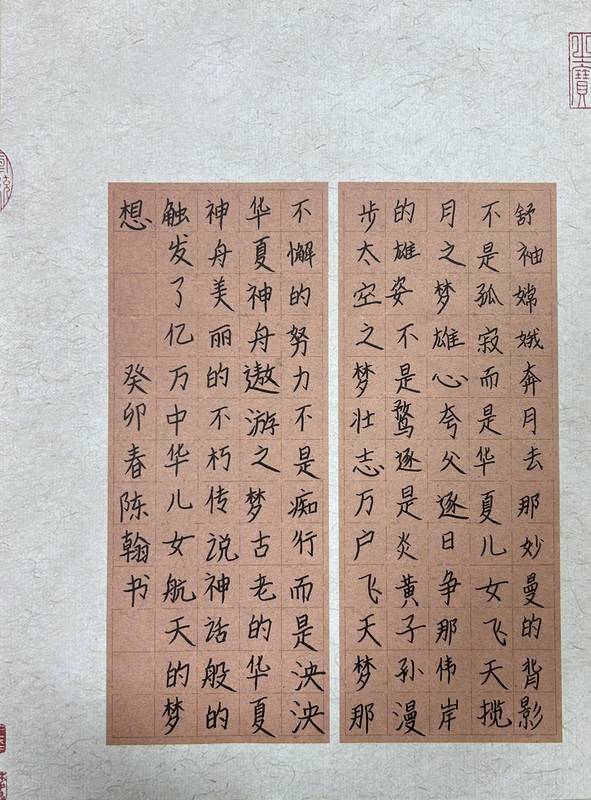 舒袖嫦娥奔月去那妙曼的背影
不是孤寂而是华夏儿女飞天揽
月之梦雄心夸父逐日争那伟岸
的雄姿不是鹜逐是炎黄子孙漫
步太空之梦壮志万户飞天梦那
不懈的努力不是痴行而是泱泱
华夏神舟遨游之梦古老的华夏
神舟美丽的不朽传说神话般的
触发了亿万中华儿女航天的梦
想 癸卯春陈翰书